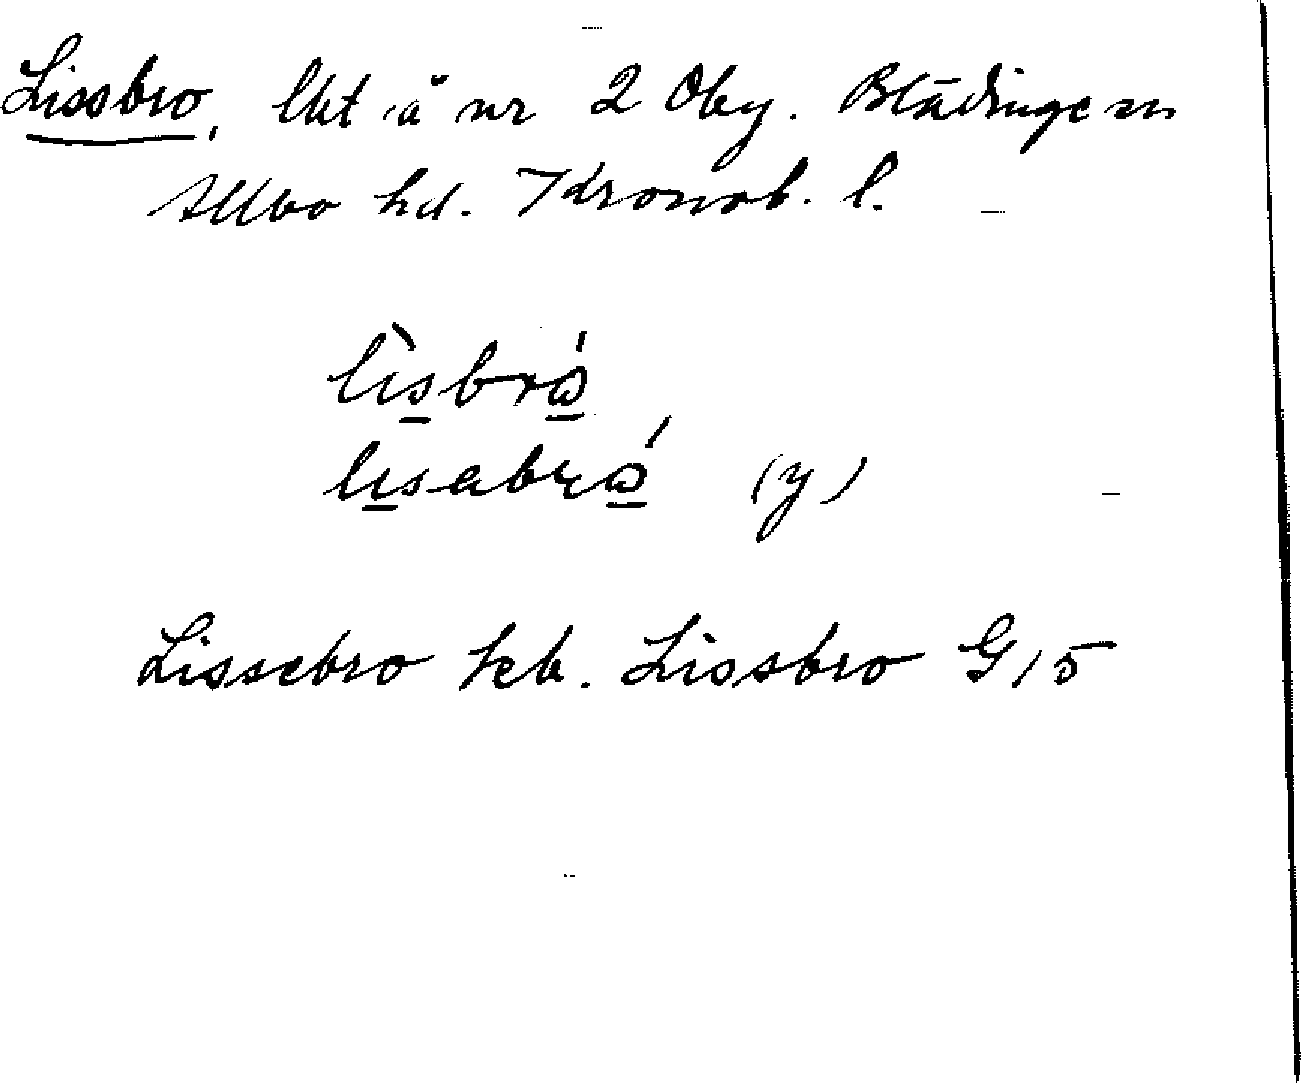 Lissbro, lht å nr 2 Oby. Blädinge sn
Allbo hd. Kronob. l.
lìsbrɷ́
lisabrɷ́ (y)
Lissebro Jeb. Lissbro G15